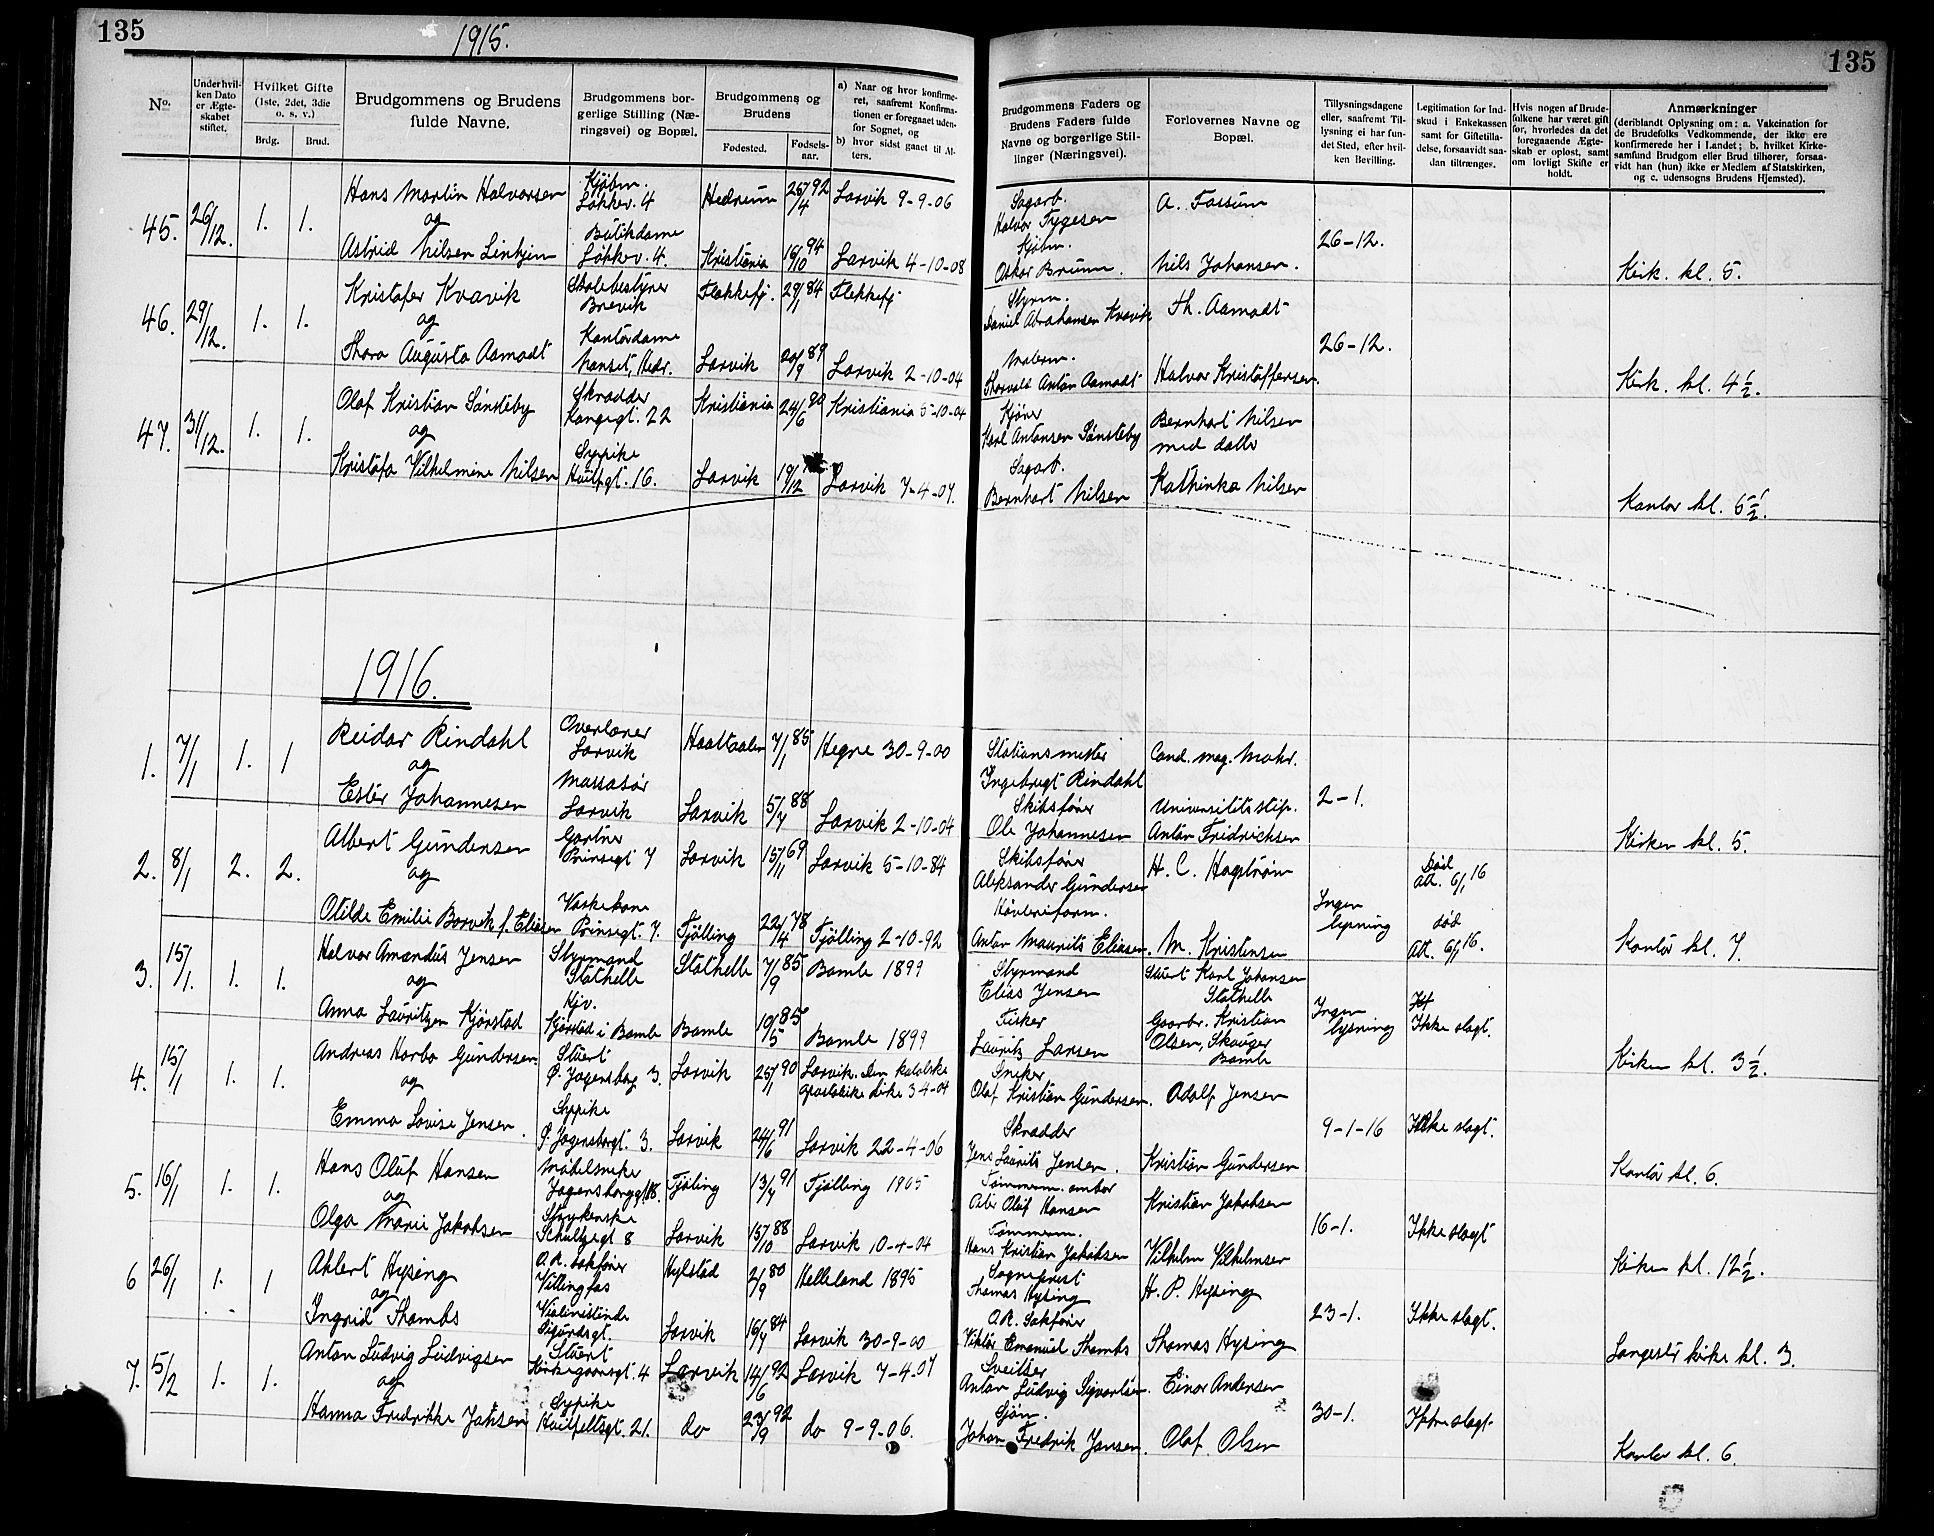 135
1915.
135
No.
Underhvilken Dato er Ægteskabet stiftet.
Hvilket Gifte (1ste, 2det, 3die o. s. v.)
Brdg.
Brud.
Brudgommens og Brudens fulde Navne.
Brudgommens borgerlige Stilling (Næringsvei) og Bopæl.
Brudgommens og Brudens
Fødested.
Fødselsaar.
a) Naar og hvor konfirmeret, saafremt Konfirmationen er foregaaet udenfor Sognet, og
b) hvor sidst gaaet til Alters.
Brudgommens Faders og Brudens Faders fulde Navne og borgerlige Stillinger (Næringsvei).
Forlovernes Navne og Bopæl.
Tillysningsdagene eller, saafremt Tillysning ei har fundet Sted, efter hvilken Bevilling.
Legitimation for Indskud i Enkekassen samt for Giftetilladelse, forsaavidt saadan tiltrænges.
Hvis nogen af Brudefolkene har været gift før, hvorledes da det foregaaende Ægteskab er opløst, samt om lovligt Skifte er holdt.
Anmærkninger
(deriblandt Oplysning om: a. Vakcination for de Brudefolks Vedkommende, der ikke ere konfirmerede her i Landet; b. hvilket Kirkesamfund Brudgom eller Brud tilhører, forsaavidt han (hun) ikke er Medlem af Statskirken, og c. udensogns Brudens Hjemsted).
45. 26/12. 1. 1. Hans Martin Halvorsen Kjøbm. Løkkev. 4 Hedrum 26/4 92 Larvik 9-9-06 Sagarb. Halvor Tygesen A. Fossum
og
Astrid Nilsen Linhjem Butikdame Løkkev. 4. Kristiania 16/10 94 Larvik 4-10-08 Kjøbm. Oskar Bruun. Nils Johansen. 26-12. Kirk. kl. 5.
46. 29/12. 1. 1. Kristofer Kvavik Skolebestyrer Brevik Flekkefj. 29/1 84 Flekkefj Styrm. Daniel Abrahamsen Kvavik Th. Aamodt
og
Thora Augusta Aamodt Kontordame Nanset, Hedr. Larvik 20/9 89 Larvik 2-10-04 Malerm. Thorvald Anton Aamodt Halvor Kristoffersen. 26-12. Kirk. kl. 4 1/2.
47. 31/12. 1. 1. Olaf Kristian Sønsteby Skrædder Kongegt. 22 Kristiania 24/6 80 Kristiania 5-10-04 Kjører Karl Antonsen Sønsteby Bernhart Nilsen med datter
og
Kristofa Vilhelmine Nilsen Sypike Huitfgt. 16. Larvik 19/12 Larvik 7-4-07. Sagarb. Bernhart Nilsen Kathinka Nilsen Kontor kl. 6 1/2.
1916.
1. 7/1 1. 1 Reidar Rindahl Overlærer Larvik Haaltaalen 7/1 85 Hegre 30-9-00 Stationsmester Ingebrigt Rindahl Cand. mag. Mohr.
og
Ester Johannesen Massasør Larvik Larvik 5/7 88 Larvik 2-10-04 Skibsfører Ole Johannesen Universitetsstip. Anton Fridrichsen 2-1. Kirken kl. 5.
2. 8/1 2. 2. Albert Gundersen Gartner Prinsegt 7 Larvik 15/11 69 Larvik 5-10-84 Skibsfører Aleksander Gundersen H. C. Hagstrøm Død att. 6/1 16
og
Otilde Emilie Borvik f. Eliasen Vaskekone Prinsegt. 7. Tjølling 22/4 78 Tjølling 2-10-92 Høvleriform. Anton Maurits Eliasen. M. Kristensen Ingen lysning død Att. 6/1 16. Kontor kl. 7.
3. 15/1. 1. 1. Halvor Amandus Jensen Styrmand Stathelle Stathelle 7/9 85 Bamle 1899 Styrmand Elias Jensen Stuert Karl Johansen Stathelle
og
Anna Lauritzen Kjørstad Kjv. Kjørstad i Bamle Bamle 10/5 85 Bamle 1899 Fisker Lauritz Larsen Gaarbr. Kristian Olsen, Skauger Bamle Ingen lysning Ikke slagt. Kirken kl. 3 1/2.
4. 15/1 1. 1. Andreas Harbo Gundersen Stuert Ø. Jagersborg 3. Larvik 25/1 90 Larvik. Den katolske apostoliske kirke 3-4-04 Snekker Olaf Kristian Gundersen. Adolf Jensen
og
Emma Lovise Jensen. Sypike Ø. Jagersborgt. 3. Larvik 24/6 91 Larvik 22-4-06 Skrædder Jens Laurits Jensen. Kristian Gundersen 9-1-16 Ikke slagt. Kontor kl. 6.
5. 16/1 1. 1. Hans Oluf Hansen Møbelsnekr Jagersborggt. 18. Tjøling 13/7 91 Tjølling 1905 Tømmerm. Oluf Hansen Kristian Jakobsen
og
Olga Marie Jakobsen Strykerske Schultzegt 8 Larvik 15/10 88 Larvik 10-4-04 Tømmerm. Hans Kristian Jakobsen Vilhelm Vilhelmsen 16-1. Ikke slagt Kirken kl. 12 1/2.
6 26/1 1. 1 Ahlert Hysing O.R. Sakfører Vittingfos Hylestad 2/9 80 Helleland 1895 Sogneprest Thomas Hysing H. P. Hysing
og
Ingrid Thambs Violinistinde Sigurdsgt. Larvik 16/7 84 Larvik 30-9-00 O.R. Sakfører Viktor Emanuel Thambs Thomas Hysing 23-1. Ikke slagt. Langestr kirke kl. 3.
7. 5/2 1. 1. Anton Ludvig Ludvigsen Stuert Kirkegaardsgt. 4 Larvik 14/6 92 Larvik 7-4-07 Sveitser Anton Ludvig Syvertsen. Einar Andersen
og
Hanna Fredrikke Jansen Sypike Huitfeldtsgt. 21. do 23/9 92 do 9-9-06. Sjøm. Johan Fredrik Jansen. Olaf Olsen 30-1. Ikke slagt. Kontor kl. 6.